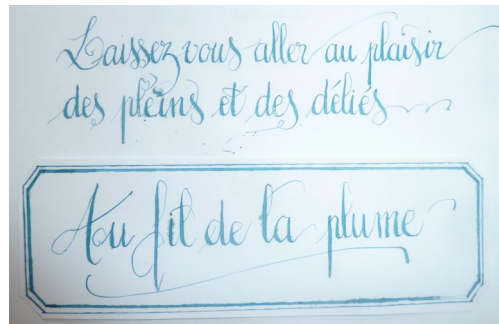 Laissez vous aller au plaisir
des pleins et des déliés
Au fil de la plume